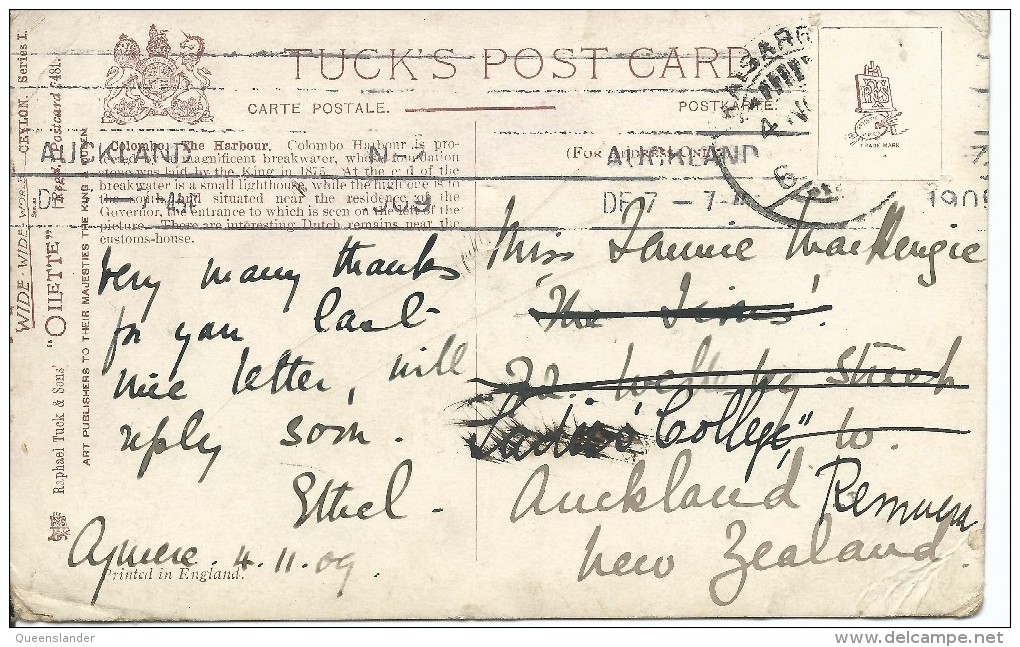 TUCK'S POST CARD
CARTE POSTALE.
POSTKARTE.
(FOR ADDRESS ONLY.)
TRADE MARK
Colombo. The Harbour. Colombo Harbour is pro-
tected by a magnificent breakwater, whose foundation
stone was laid by the King in 1875. At the end of the
breakwater is a small lighthouse, while the high one is to
the south, and situated near the residence of the
Governor, the entrance to which is seen on the left of the
picture. There are interesting Dutch remains near the
customs-house.
AUCKLAND N.Z.
DE 7 - 7-AM 1909
AUCKLAND
DE 7 - 7-A 1909
"WIDE-WIDE-WORLD" Series CEYLON. Series I.
"OILETTE" Regd. Postcard 7481.
Raphael Tuck & Sons'
ART PUBLISHERS TO THEIR MAJESTIES THE KING & QUEEN.
Very many thanks
for your last
nice letter, will
reply soon.
Ethel.
4.11.09.
Printed in England.
Miss Fannie MacKenzie
22. Street
Ladies' College,"
Auckland Remuera
New Zealand.
Queenslander
www.delcampe.net